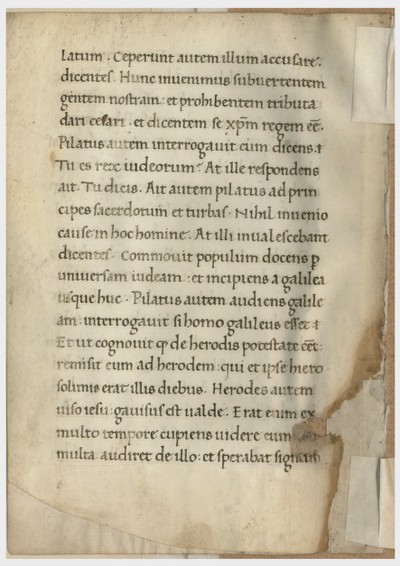 latum. Ceperunt autem illum accusare.
dicentes. Hunc invenimus subvertentem
gentem nostram: et prohibentem tributa
dari cesari. et dicentem se xp̄m regem eē.
Pilatus autem interrogavit eum dicens:
Tu es rex iudeorum? At ille respondens
ait. Tu dicis. Ait autem pilatus ad prin
cipes sacerdotum et turbas. Nihil invenio
cause in hoc homine. At illi invalescebant
dicentes. Commovit populum docens ꝑ
universam iudeam: et incipiens a galilea
usque huc. Pilatus autem audiens galile
am: interrogavit si homo galileus esset:
Et ut cognovit ꝙ de herodis potestate eēt:
remisit eum ad herodem: qui et ipse hiero
solimis erat illis diebus. Herodes autem
viso iesu: gavisus est valde. Erat enim ex
multo tempore cupiens videre eum
multa audiret de illo: et sperabat signum